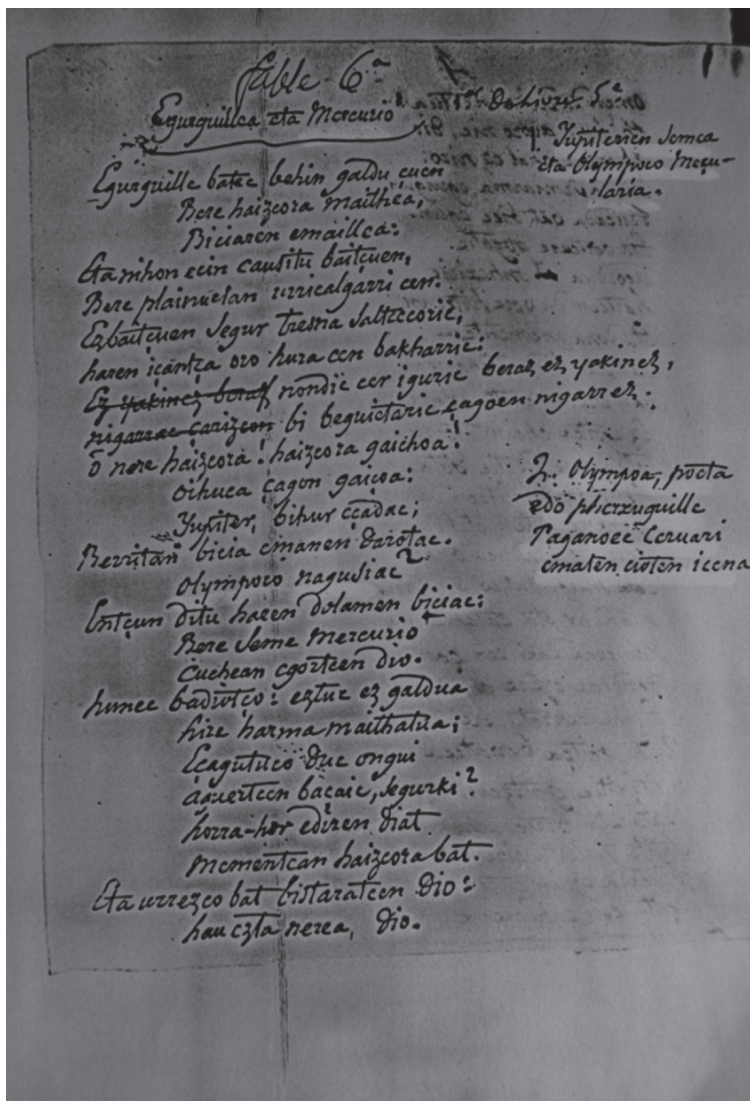 fable 6.a
Egurguillea eta Mercurio
Egurguille batec behin galdu çuen
Bere haizcora maithea,
Biciaren emaillea:
Eta nihon ecin causitu baitçuen,
Bere plainuetan urricalgarri cen.
Ezbaitçuen segur tresna saltcecoric,
haren içantça oro hura cen bakharric:
Ez yakinez beraz nondic cer iguric beraz ez yakinez,
nigarrac çarizcon bi beguietaric çagoen nigarrez.
ô nere haizcora! haizcora gaichoa!
oihuca çagon gaiçoa:
Jupiter, bihur ççadac;
Berritan bicia emanen darotac.
Olympoco nagusiac 2
Entçun ditu haren dolamen biciac:
Bere seme Mercurio
Cuchean egortcen dio.
hunec badiotço: eztuc ez galdua
hire harma maithatua;
Eçagutuco duc ongui
aguertcen baçaic, segurki?
horra-hor ediren diat
momentean haizcora bat.
Eta urrezco bat bistaratcen dio:
hau ezta nerea, dio.
1. Jupiterien semea
eta Olympoco meçu-
laria.
2. Olympoa, poeta
edo phertzuguille
Paganoec Ceruari
ematen cioten icena